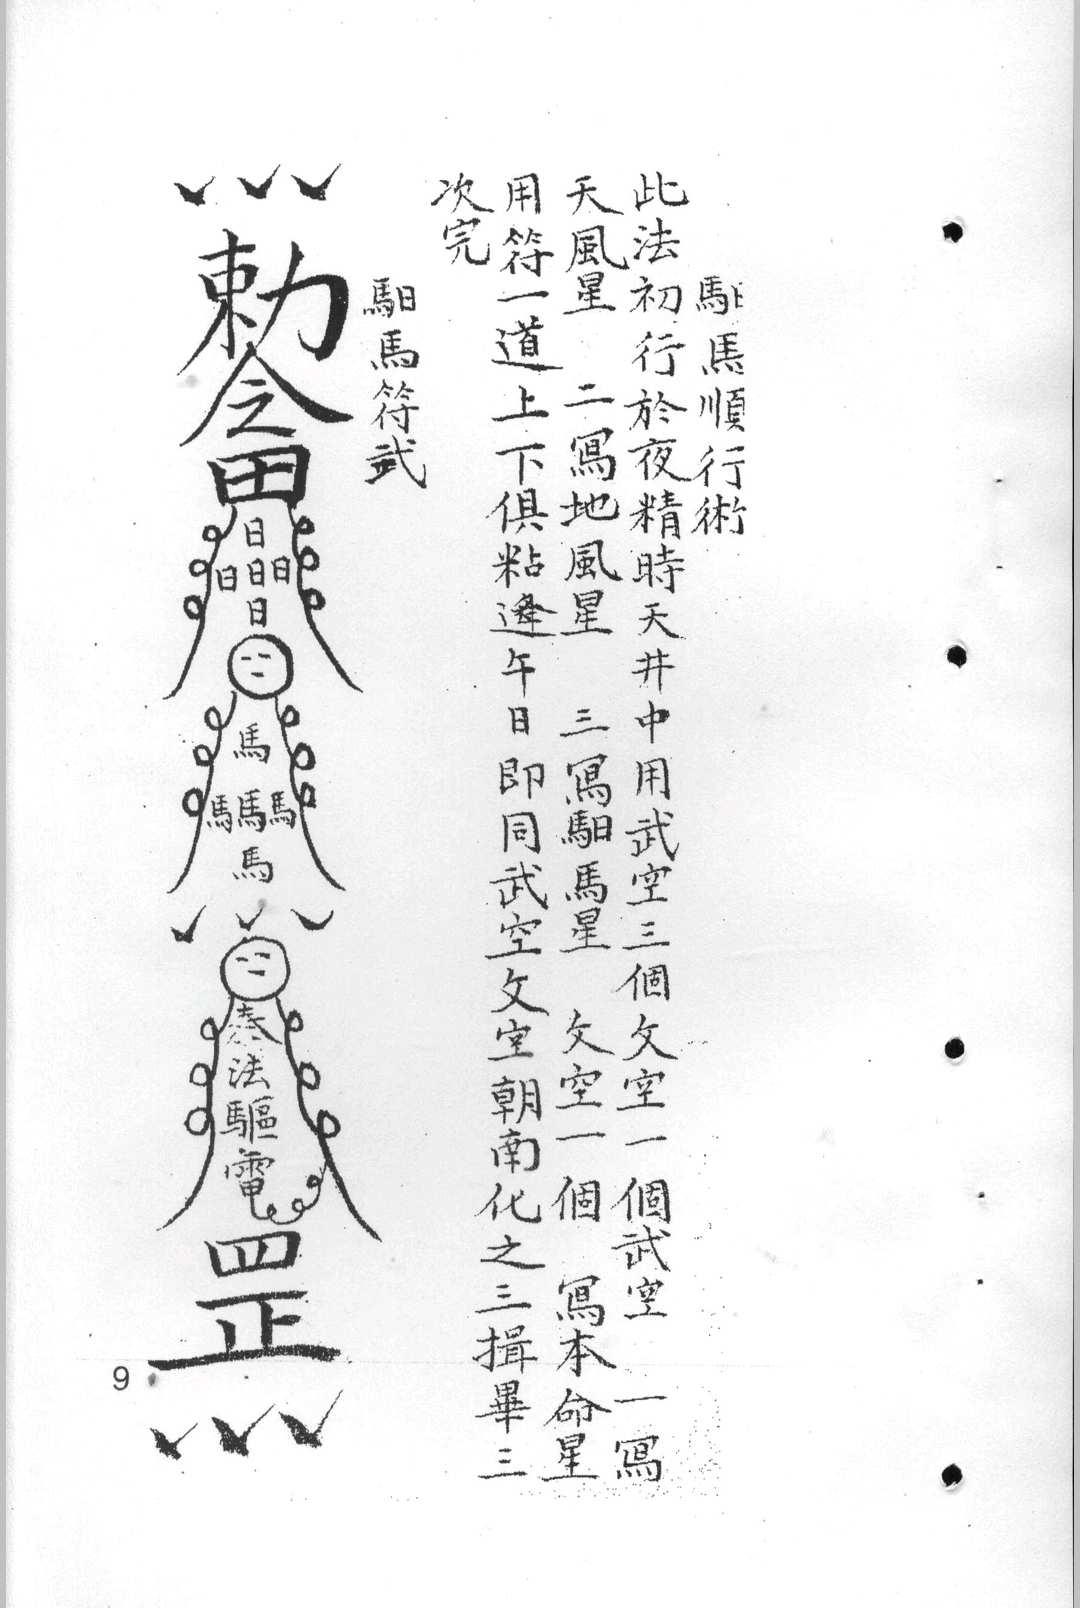 馹馬順行術
此法初行於夜精時天井中用武空三個文空一個武空 一寫
天風星 二寫地風星 三寫馹馬星 文空一個 寫本命星
用符一道上下俱粘逢午日即同武空文空朝南化之三揖畢三
次完
馹馬符武
勅令
田
日
日日日
日
馬
馬馬馬
馬
奉
法
驅
電
罡
9